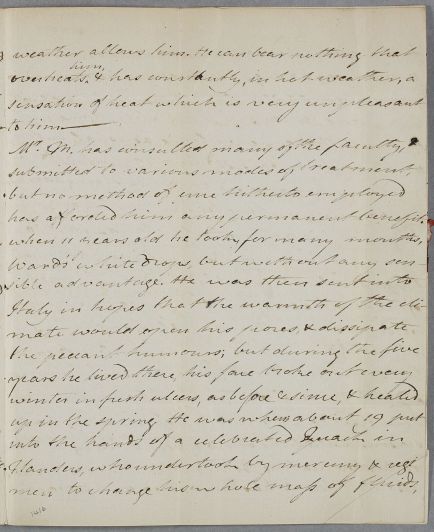 weather allows him. He can bear nothing that
overheats him, & has constantly, in hot weather, a
sensation of heat which is very unpleasant
to him—
Mr. M. has consulted many of the faculty, &
submitted to various modes of treatment
but no method of cure hitherto employed
has afforded him any permanent benefit.
when 11 years old he took, for many months,
Ward's white drops, but without any sen
sible advantage. He was then sent into
Italy in hopes that the warmth of the cli-
mate would open his pores, & dissipate
the peccant humours; but during the five
years he lived there, his face broke out every
winter in fresh ulcers, as before & since, & healed
up in the spring. He was when about 19 put
into the hands of a celebrated Quack in
Flanders, who undertook by mercury & regi
men to change his whole mass of fluids,